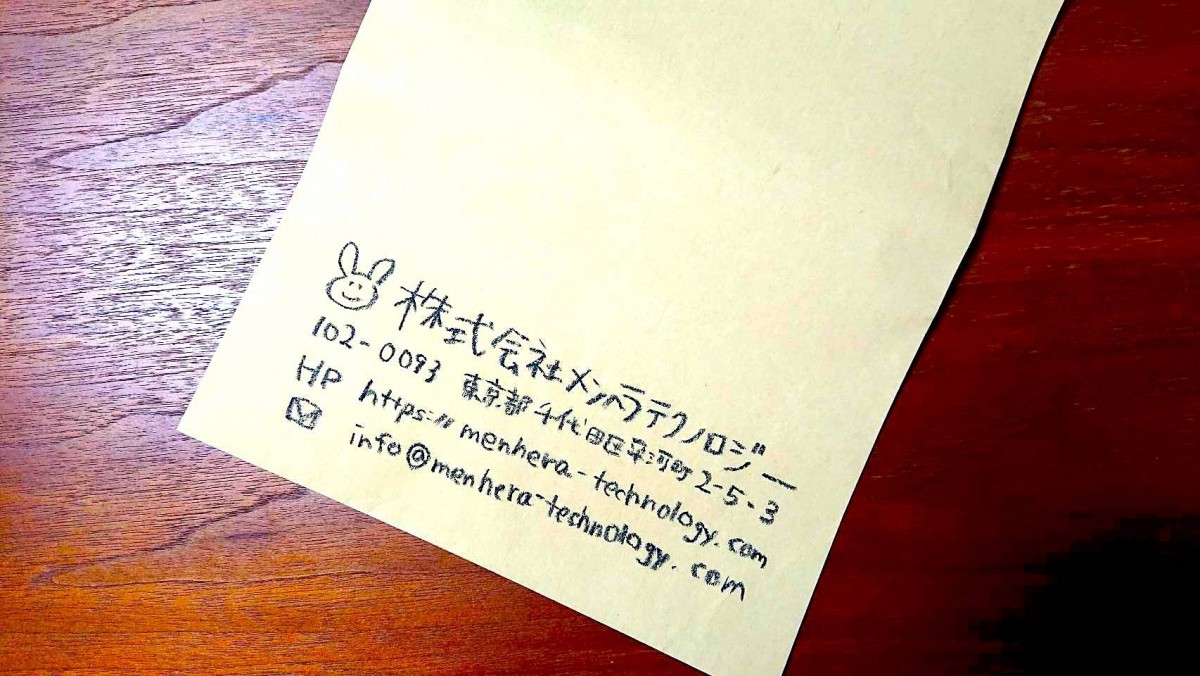 株式会社メンヘラテクノロジー
102-0093 東京都千代田区平河町2-5-3
HP https://menhera-technology.com
info@menhera-technology.com